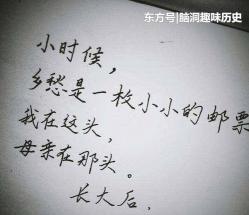 东方号|脑洞趣味历史
小时候，
乡愁是一枚小小的邮票
我在这头，
母亲在那头。
长大后，